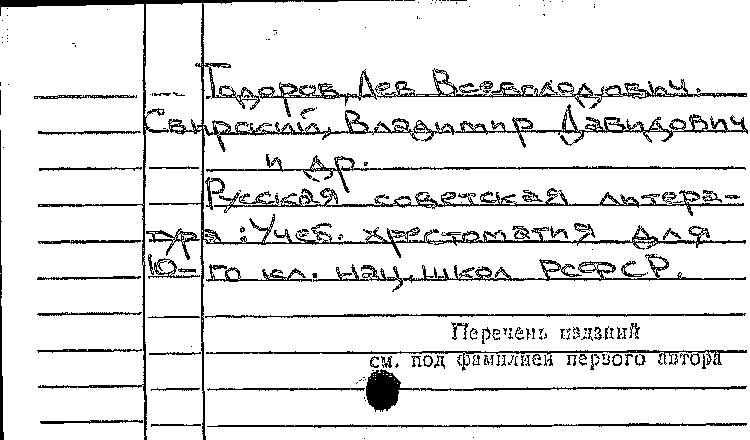 Тодоров, Лев Всеволодович.
Свирский, Владимир Давидович
и др.
Русская советская литера-
тура : Учеб. хрестоматия для
10-го кл. нац. школ РСФСР.
Перечень изданий
см. под фамилией первого автора